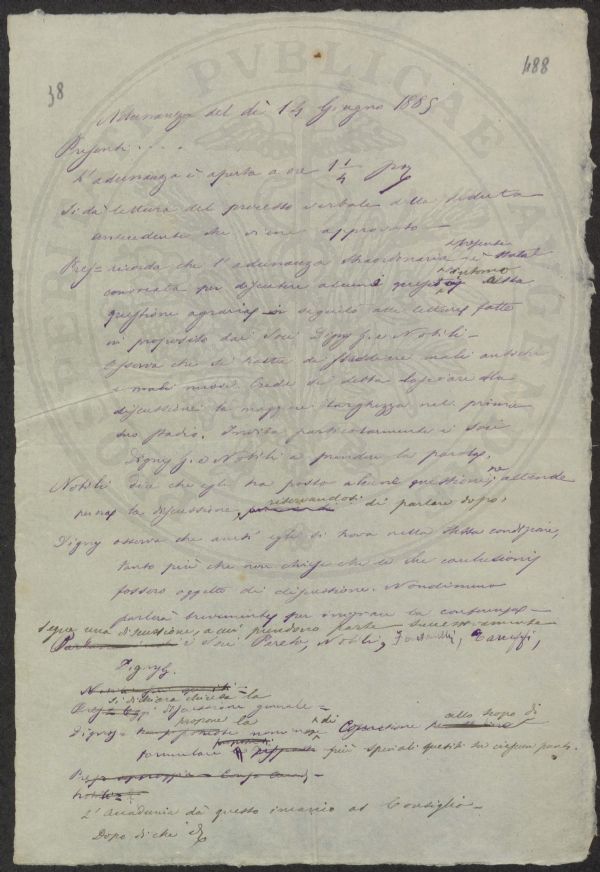 38
488
Adunanza del dì 14 Giugno 1885
Presenti . . . .
L'adunanza è aperta a ore 1 1/4 pm
Si dà lettura del processo verbale della seduta
antecedente che viene approvato –
Pres= ricorda che l'adunanza straordinaria presente è stata
convocata per discutere alcuni intorno alla
questione agraria in seguito alle letture fatte
in proposito dai Soci Digny G. e Nobili –
Osserva che si tratta di mali antichi
e mali nuovi. Crede si debba lasciare alla
discussione la maggiore larghezza nel primo
suo stadio. Invita particolarmente i Soci
Digny G. e Nobili a prendere la parola.
Nobili dice che egli ha posto alcune questioni, ne attende
la discussione, riservandosi di parlare dopo.
Digny osserva che anch' egli si trova nella stessa condizione,
tanto più che non chiese che le sue conclusioni
fossero oggetto di discussione. Nondimeno
parlerà brevemente per
Segue una discussione, a cui prendono parte successivamente
i Soci Pareto, Nobili, Fontanelli, Tareffi,
Digny G.
Si dichiara chiusa la
Pres= discussione generale –
Digny= propone la nomina di Commissione allo scopo di
formulare più speciali quesiti su ciascun punto.
L'Accademia dà questo incarico al Consiglio –
Dopo di che